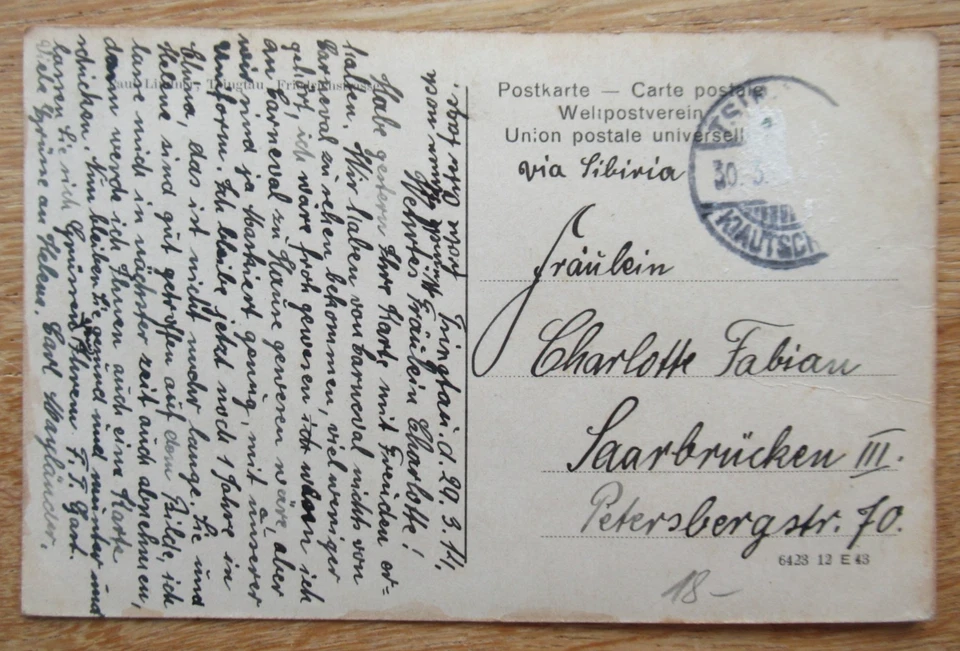 Tsingtau d. 29.3.11.
Wehrtes Fräulein Charlotte!
Habe gestern Ihre Karte mit Freuden er-
halten. Wir haben von Carneval nichts von
Carneval zu sehen bekommen, viel weniger
gehört, ich wäre froh gewesen ich wenn ich
an Carneval zu Hause gewesen wäre, aber
wir sind ja Markiert genug, mit unserer
Uniform. Ich bleibe jetzt noch 1 Jahre in
China, das ist nicht mehr lange. Sie und
Helene sind gut getroffen auf dem Bilde, ich
lasse mich in nächster zeit auch abnehmen,
dann werde ich Ihnen auch eine Karte
schicken. Nun bleiben Sie gesund und munter und
lassen Sie sich Grüssen Ihrem
Viele Grüsse an Helene. Carl Mayländer.
Ihnen noch
Oster tage!
Tsingtau, Friedrichstrasse
Postkarte — Carte postale
Weltpostverein
Union postale universell
via Sibiria
30.3.
KIAUTSCH
Fräulein
Charlotte Fabian
Saarbrücken III.
Petersbergstr. 70.
6423 12 E 43
18–